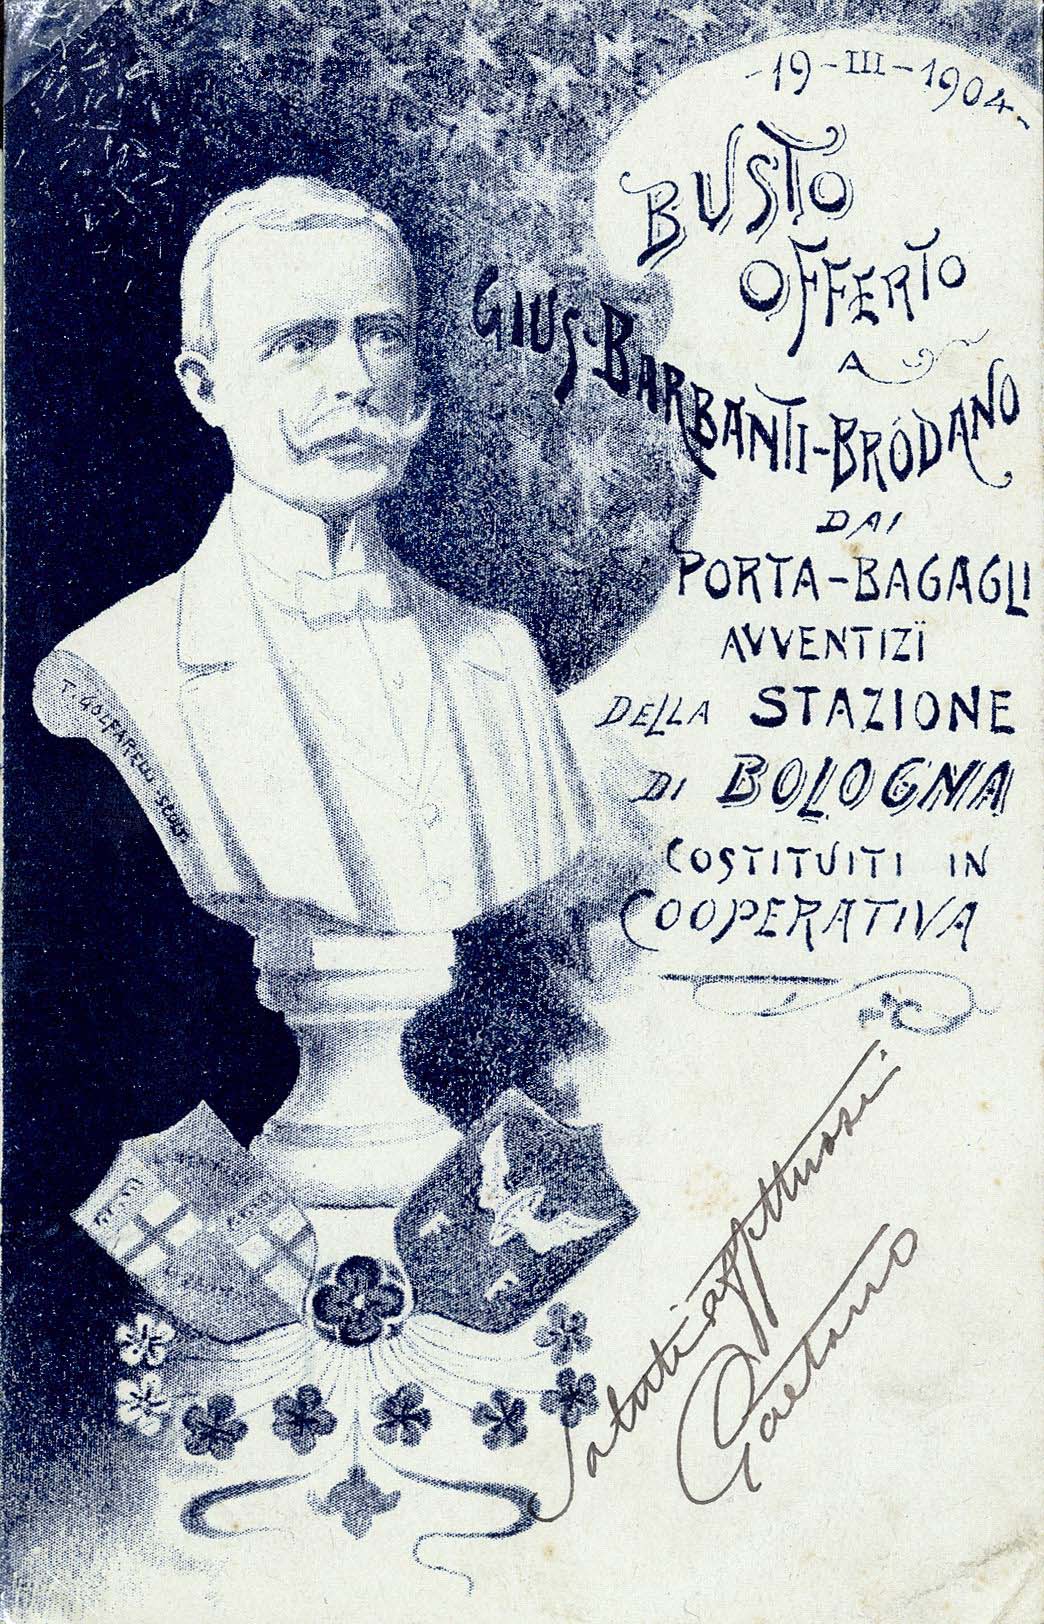 -19-III-1904-
BUSTO
OFFERTO
A
GIUS. BARBANTI-BRÒDANO
DAI
PORTA-BAGAGLI
AVVENTIZÏ
DELLA STAZIONE
DI BOLOGNA
COSTITUITI IN
COOPERATIVA
T. GOLFARELLI-SCULP.
F
F
Saluti affettuosi
Gaetano